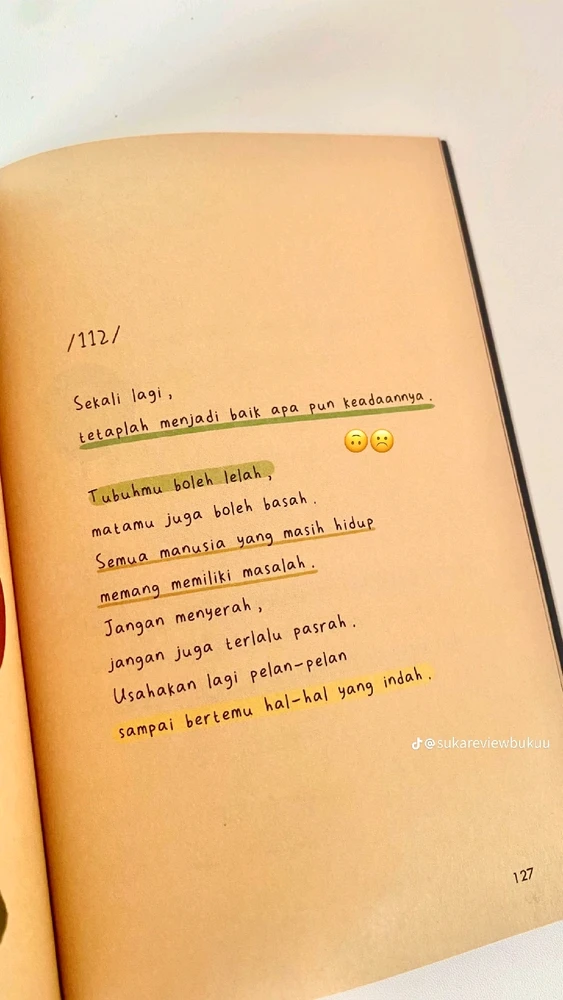 /112/
Sekali lagi,
tetaplah menjadi baik apa pun keadaannya.
🙃☹️
Tubuhmu boleh lelah,
matamu juga boleh basah.
Semua manusia yang masih hidup
memang memiliki masalah.
Jangan menyerah,
jangan juga terlalu pasrah.
Usahakan lagi pelan-pelan
sampai bertemu hal-hal yang indah.
@sukareviewbukuu
127